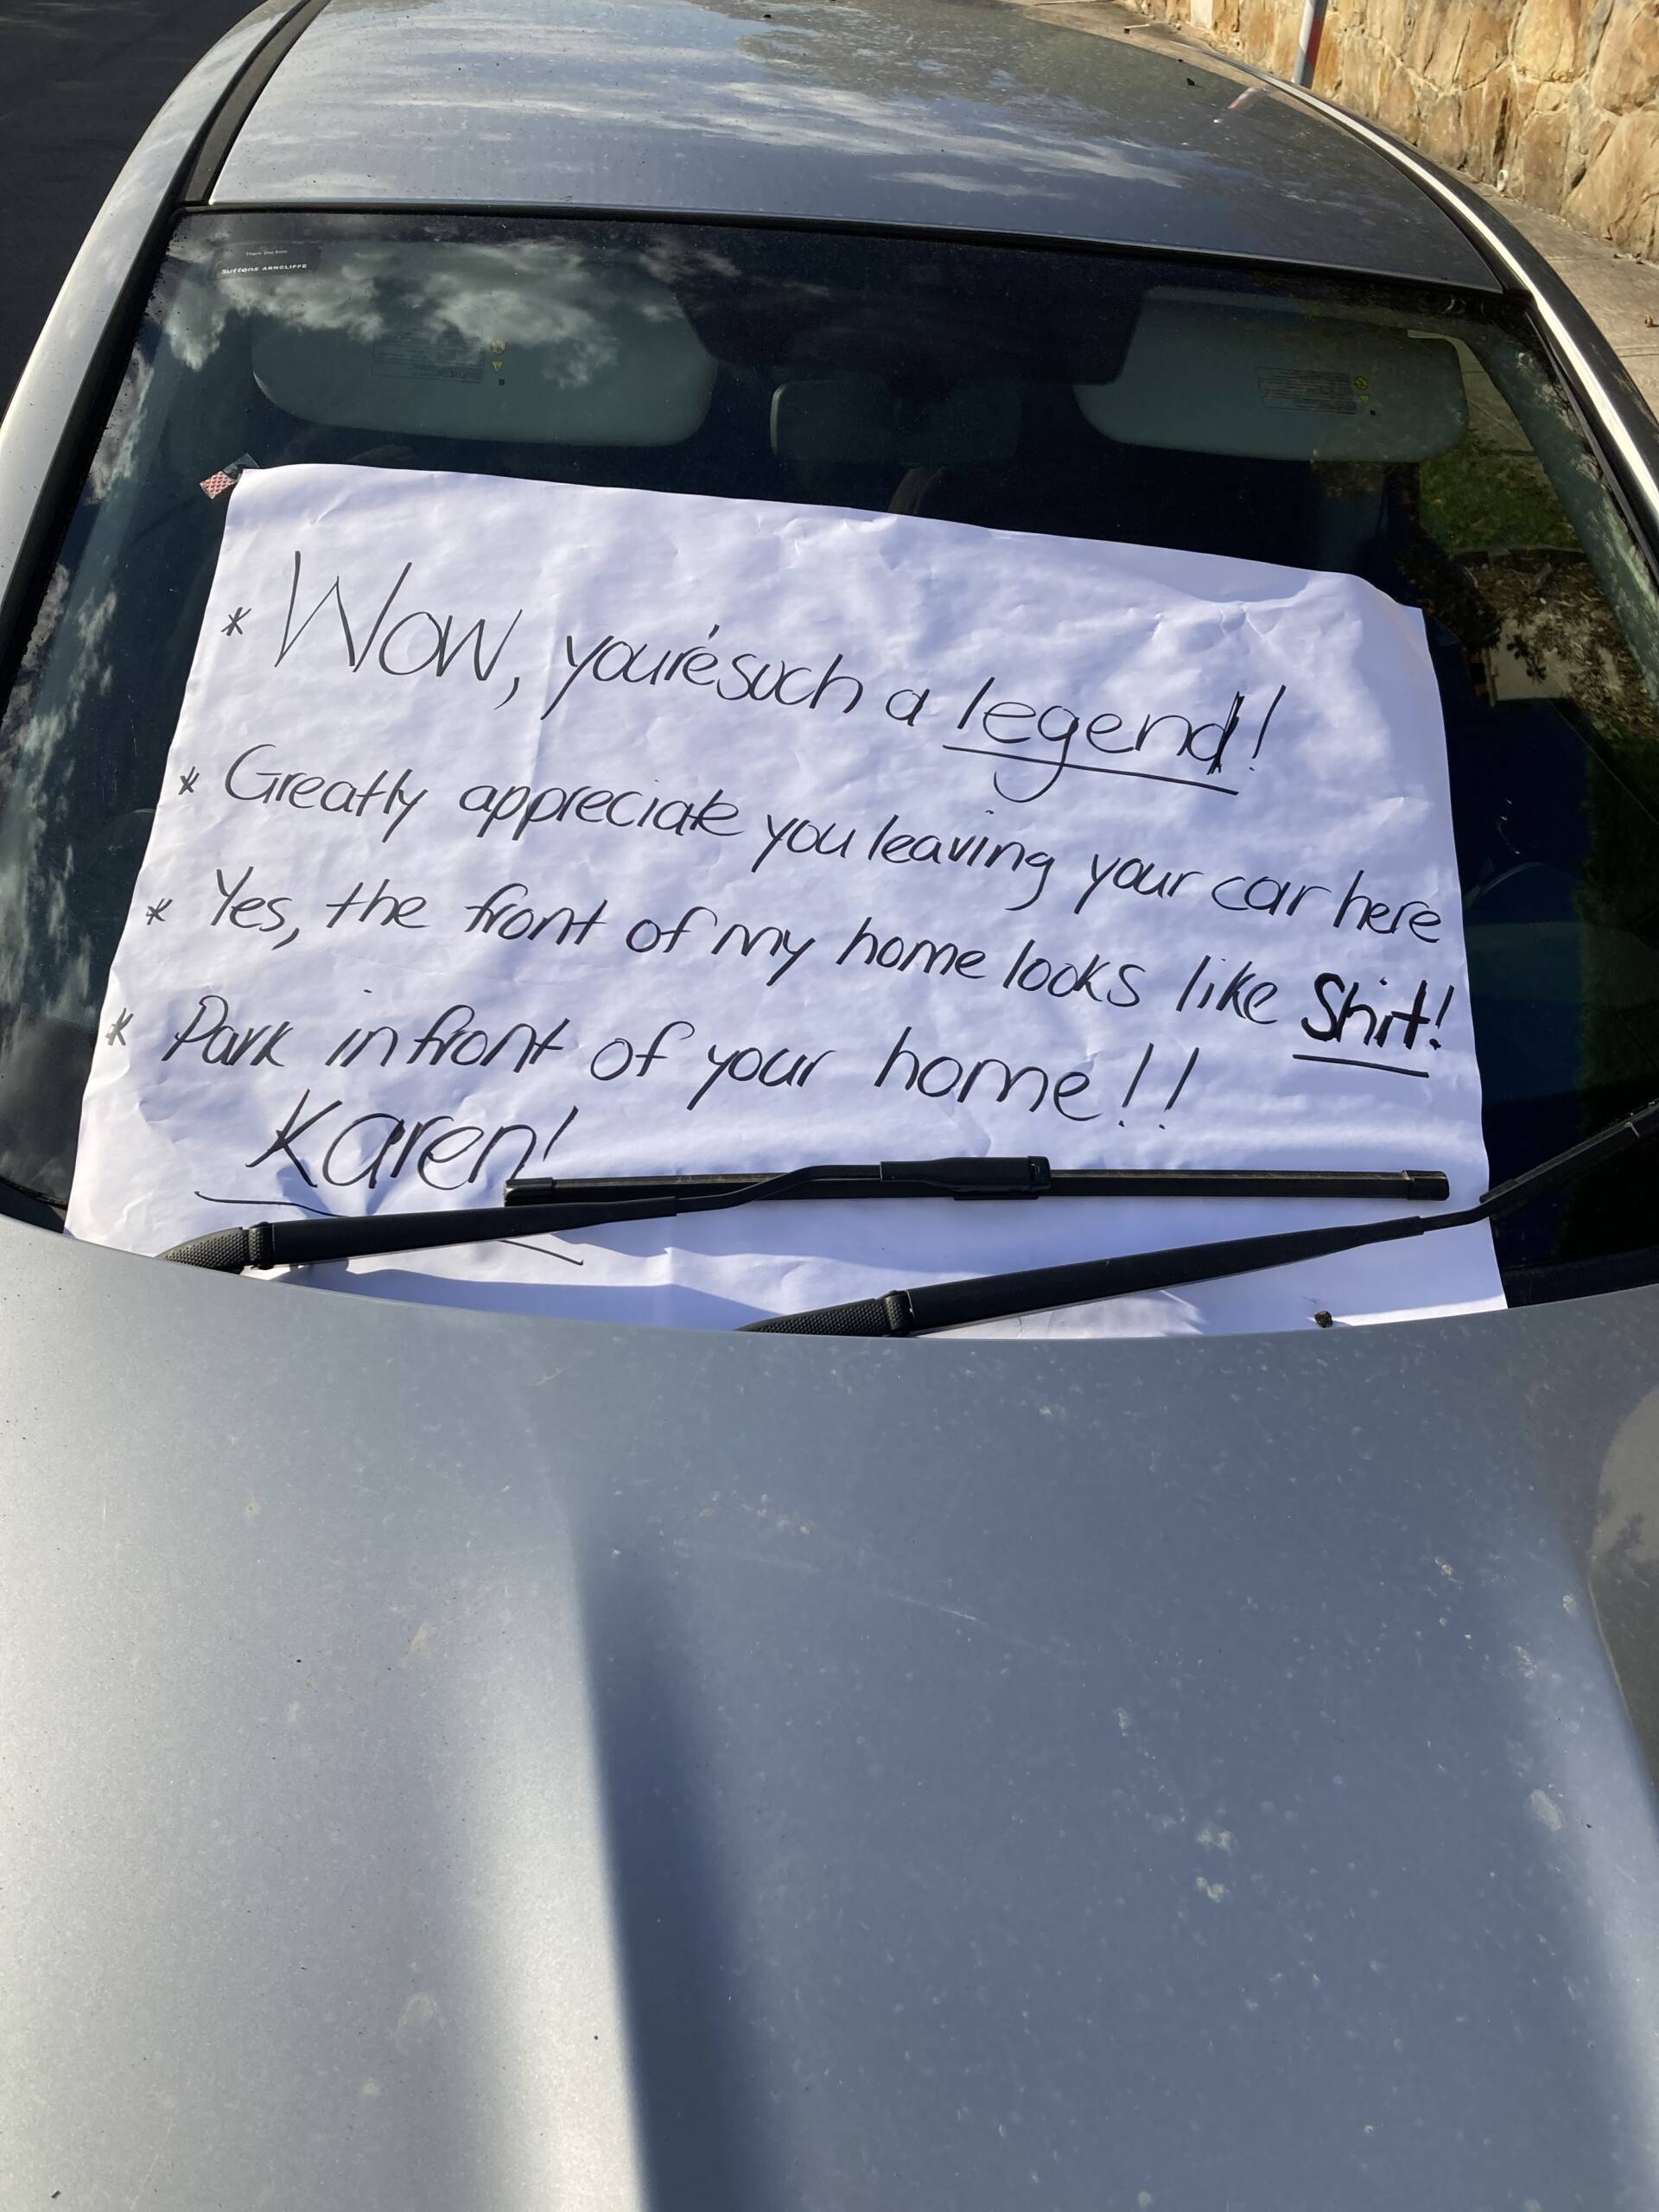 Suttons ARNCLIFFE
* Wow, you're such a legend!
* Greatly appreciate you leaving your car here
* Yes, the front of my home looks like Shit!
* Park in front of your home!!
Karen!